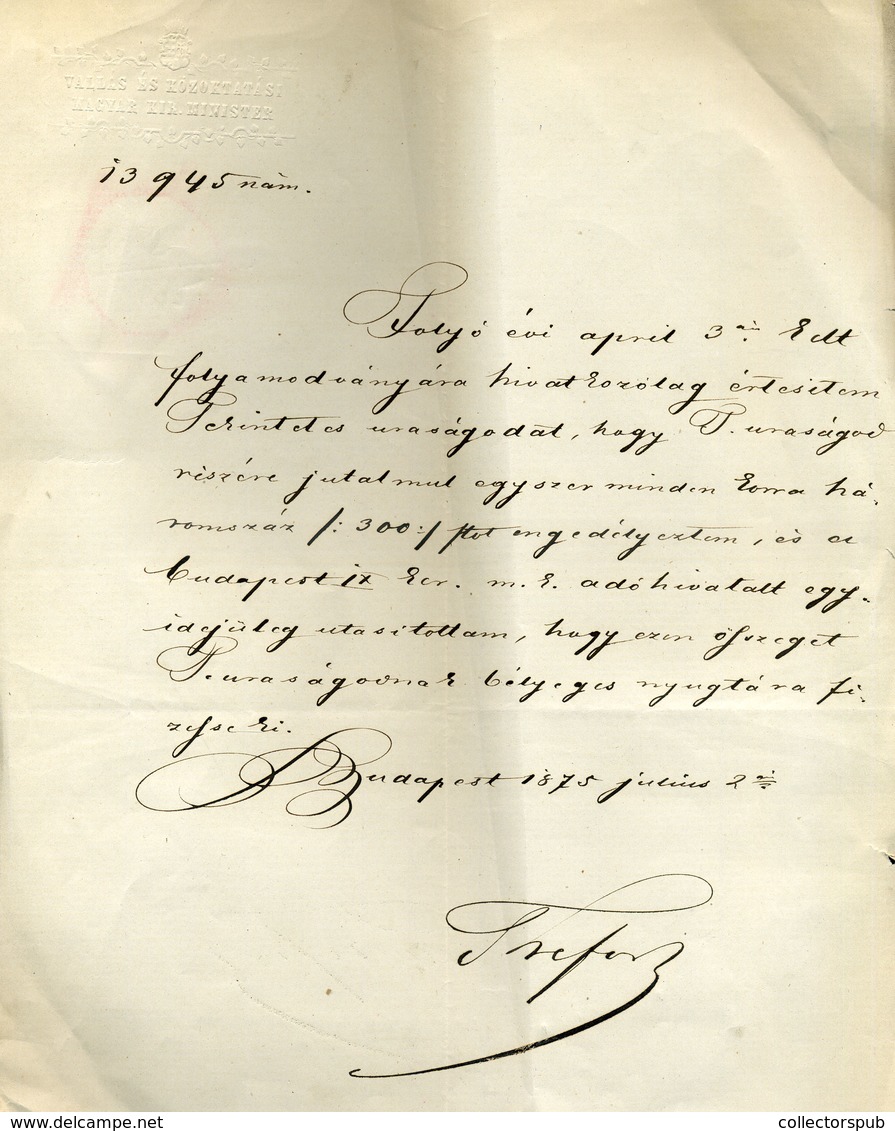 VALLÁS ÉS KÖZOKTATÁSI
MAGYAR KIR. MINISTER
13945 nám.
Folyó évi april 3 án kelt
folyamodványára hivatkozólag értesitem
Tekintetes uraságodat, hogy T. uraságod
részére jutalmul egyszer mindenkorra há-
romszáz /: 300 :/ ftot engedélyeztem, és a
budapest IX ker. m. k. adóhivatalt egy-
idejüleg utasitottam, hogy ezen összeget
T. uraságodnak bélyeges nyugtára fi-
zesse ki.
Budapest 1875 július 2 án
Trefort
www.delcampe.net
collectorspub